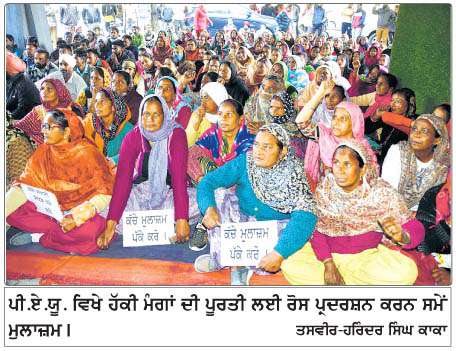 ਕੱਚੇ ਮੁਲਾਜ਼ਮ
ਪੱਕੇ ਕਰੋ ।
ਕੱਚੇ ਮੁਲਾਜ਼ਮ
ਪੱਕੇ ਕਰੋ ।
ਪੀ.ਏ.ਯੂ. ਵਿਖੇ ਹੱਕੀ ਮੰਗਾਂ ਦੀ ਪੂਰਤੀ ਲਈ ਰੋਸ ਪ੍ਰਦਰਸ਼ਨ ਕਰਨ ਸਮੇਂ
ਮੁਲਾਜ਼ਮ। ਤਸਵੀਰ-ਹਰਿੰਦਰ ਸਿੰਘ ਕਾਕਾ